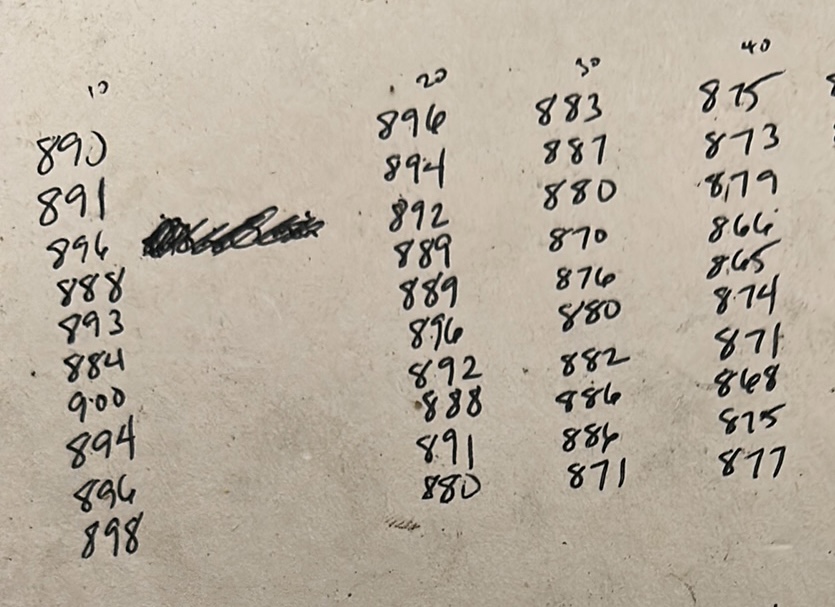 10 20 30 40
890 896 883 875
891 894 887 873
896 892 880 879
888 889 870 866
893 889 876 865
884 896 880 874
900 892 882 871
894 888 886 868
896 891 886 875
898 880 871 877